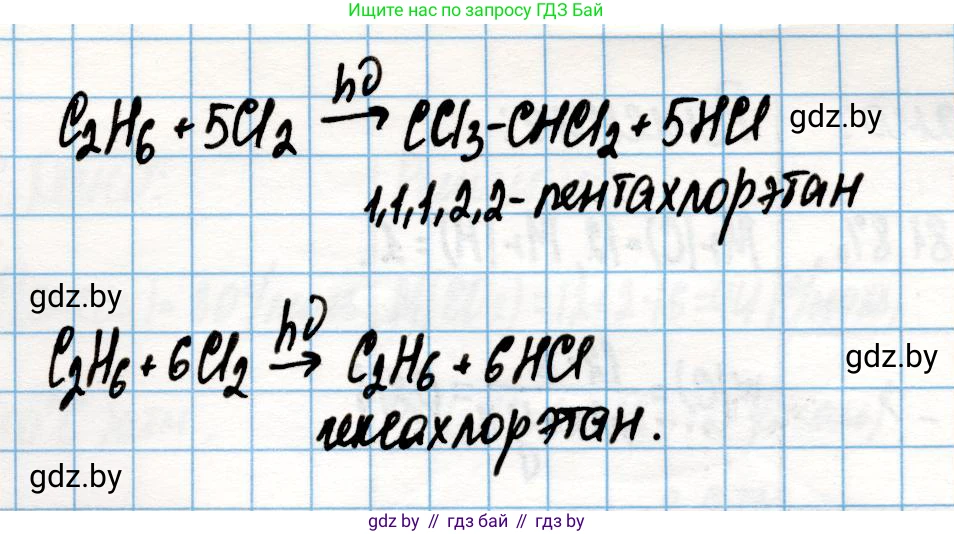 Ищите нас по запросу ГДЗ Бай
C₂H₆ + 5Cl₂ hν → CCl₃-CHCl₂ + 5HCl gdz.by
1,1,1,2,2-пентахлорэтан
gdz.by
C₂H₆ + 6Cl₂ hν → C₂H₆ + 6HCl gdz.by
гексахлорэтан.
gdz.by
gdz by // гдз бай // gdz by